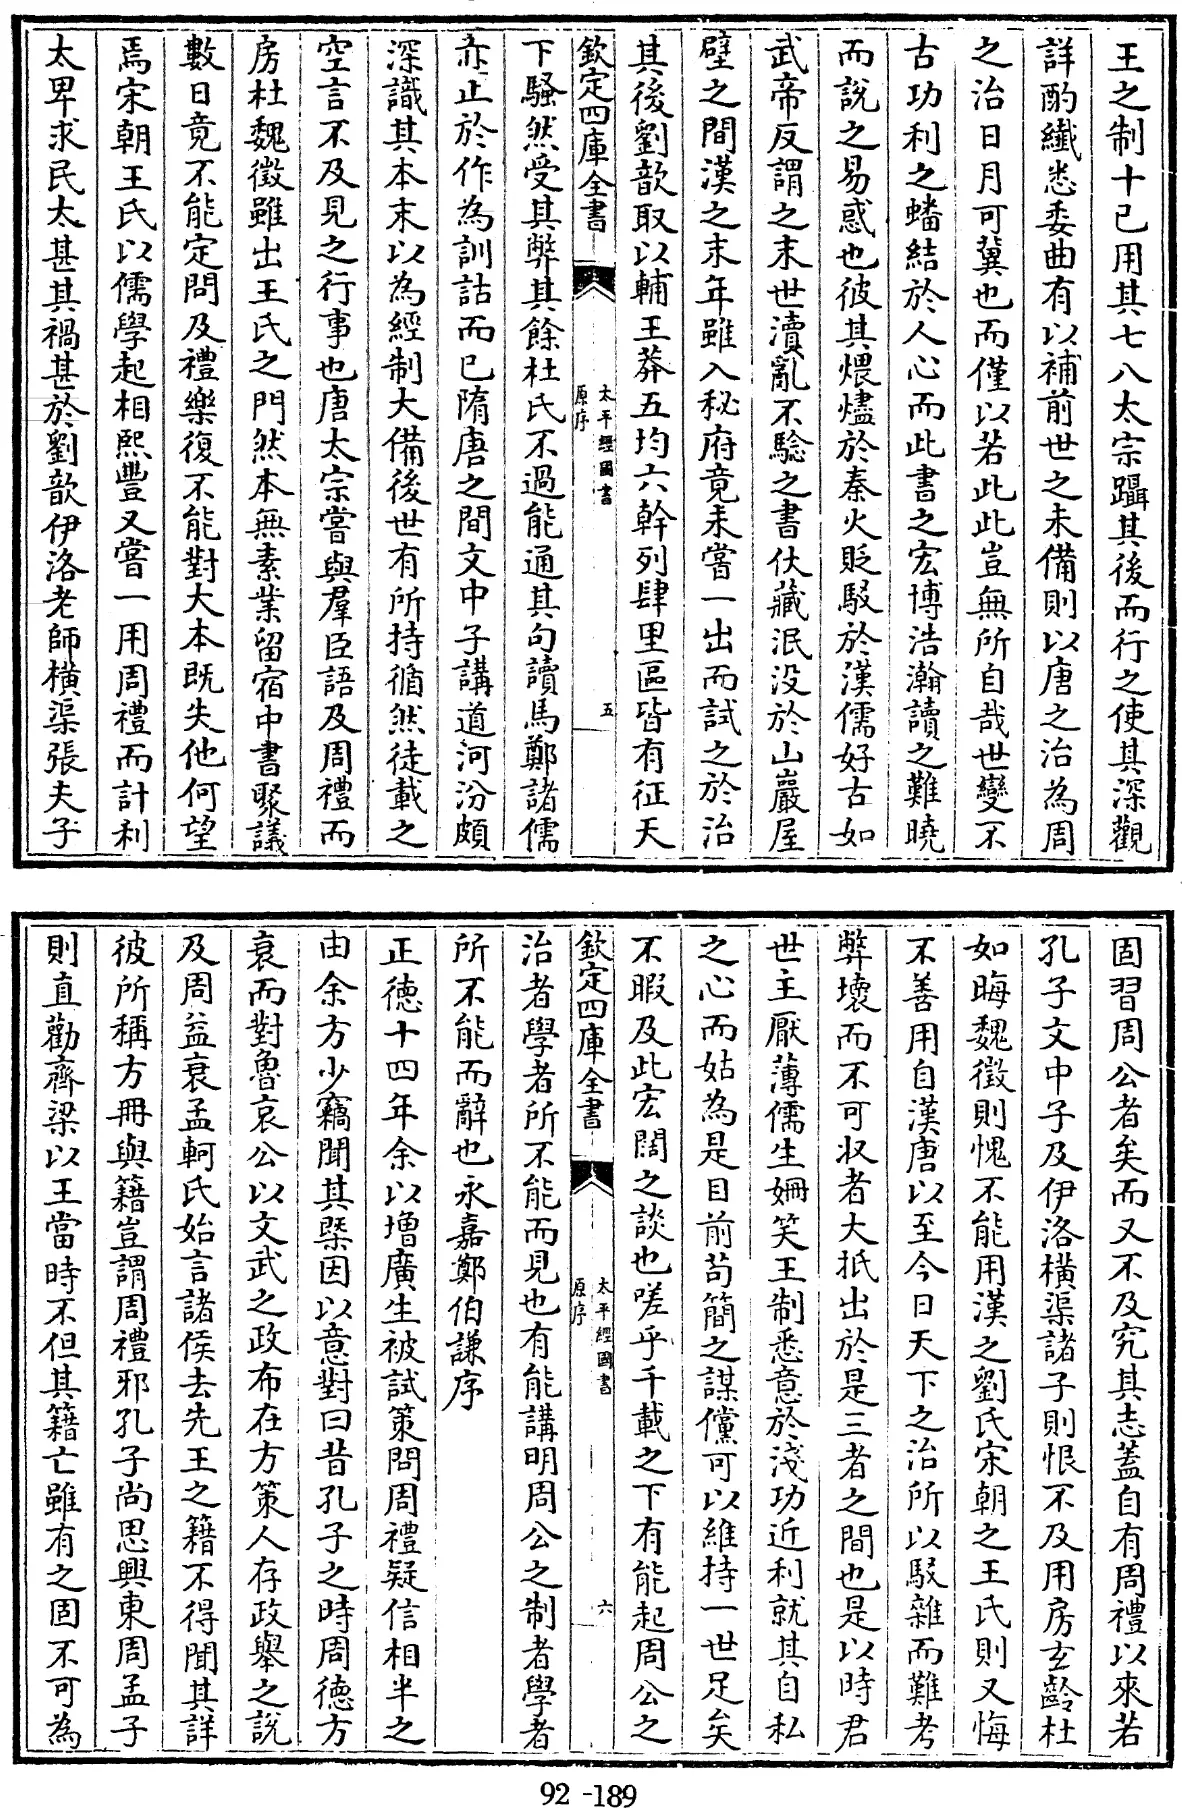 王之制十已用其七八太宗躡其後而行之使其深觀
詳酌纎悉委曲有以補前世之未備則以唐之治為周
之治日月可冀也而僅以若此此豈無所自哉世變不
古功利之蟠結於人心而此書之宏博浩瀚讀之難曉
而說之易惑也彼其煨燼於秦火貶駁於漢儒好古如
武帝反謂之末世瀆亂不驗之書伏藏泯没於山巖屋
壁之間漢之末年雖入秘府竟未嘗一出而試之於治
其後劉歆取以輔王莽五均六幹列肆里區皆有征天
欽定四庫全書
太平經國書
原序
五
下騷然受其弊其餘杜氏不過能通其句讀馬鄭諸儒
亦止於作為訓詁而已隋唐之間文中子講道河汾頗
深識其本末以為經制大備後世有所持循然徒載之
空言不及見之行事也唐太宗嘗與羣臣語及周禮而
房杜魏徵雖出王氏之門然本無素業留宿中書聚議
數日竟不能定問及禮樂復不能對大本既失他何望
焉宋朝王氏以儒學起相熙豐又嘗一用周禮而計利
太卑求民太甚其禍甚於劉歆伊洛老師横渠張夫子
固習周公者矣而又不及究其志蓋自有周禮以來若
孔子文中子及伊洛橫渠諸子則恨不及用房玄齡杜
如晦魏徵則愧不能用漢之劉氏宋朝之王氏則又悔
不善用自漢唐以至今日天下之治所以駁雜而難考
弊壞而不可收者大抵出於是三者之間也是以時君
世主厭薄儒生姍笑王制悉意於淺功近利就其自私
之心而姑為是目前苟簡之謀儻可以維持一世足矣
不暇及此宏闊之談也嗟乎千載之下有能起周公之
欽定四庫全書
太平經國書
原序
六
治者學者所不能而見也有能講明周公之制者學者
所不能而辭也永嘉鄭伯謙序
正德十四年余以增廣生被試策問周禮疑信相半之
由余方少竊聞其槩因以意對曰昔孔子之時周德方
衰而對魯哀公以文武之政布在方策人存政舉之說
及周益衰孟軻氏始言諸侯去先王之籍不得聞其詳
彼所稱方冊與籍豈謂周禮邪孔子尚思興東周孟子
則直勸齊梁以王當時不但其籍亡雖有之固不可為
92-189